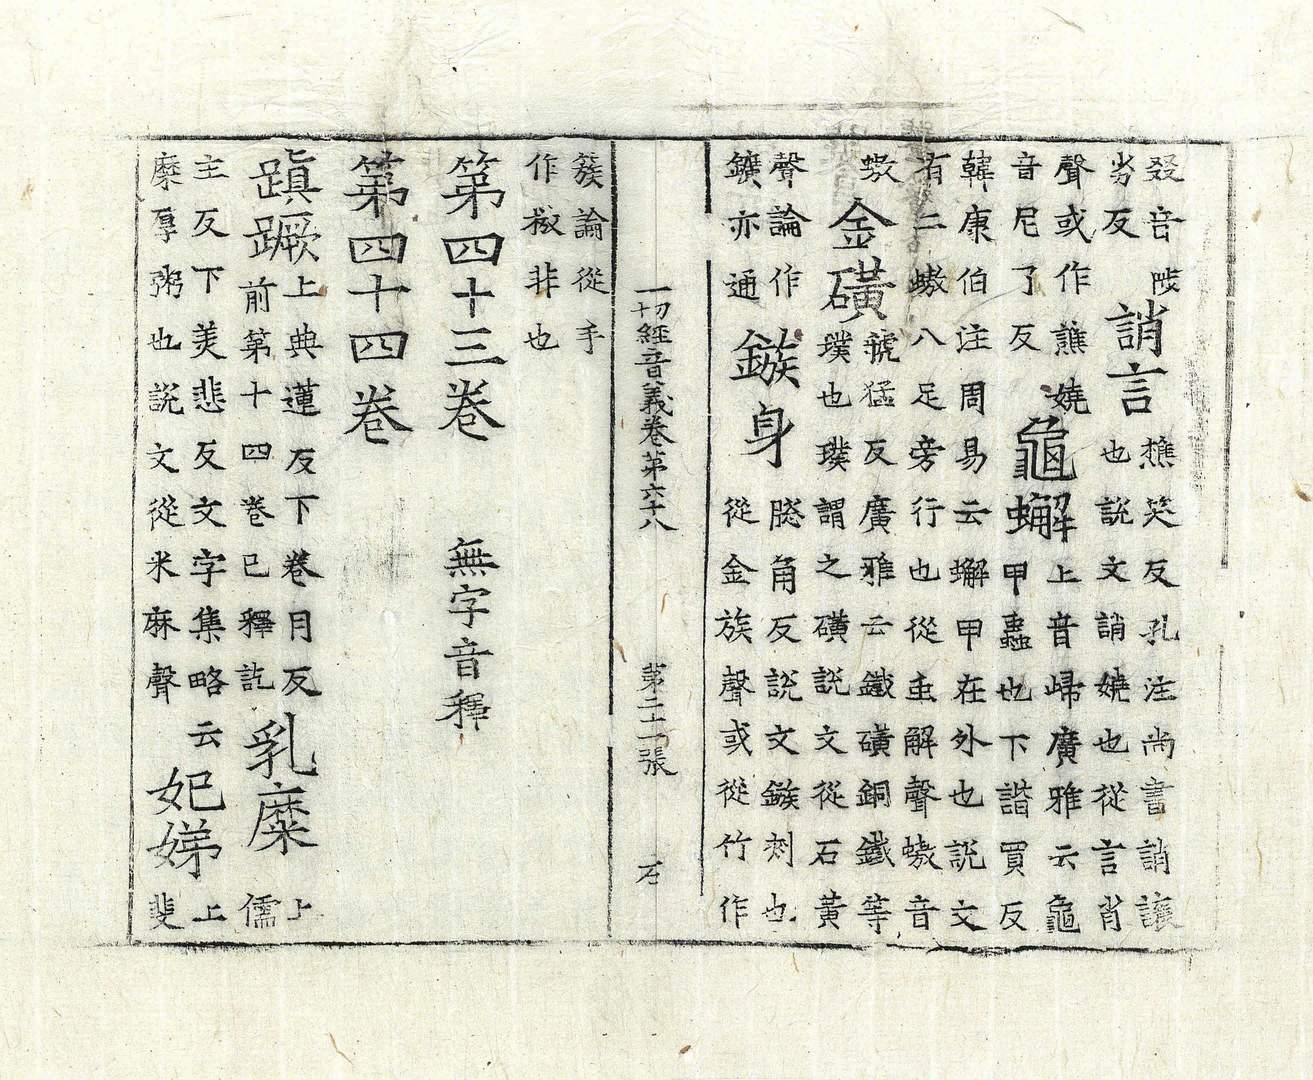 叕音陟
劣反
誚言
樵笑反孔注尚書誚讓
也説文誚嬈也從言肖
聲或作譙嬈
音尼了反
龜蠏
上音歸廣雅云龜
甲蟲也下諧買反
韓康伯注周易云蠏甲在外也説文
有二螯八足旁行也從虫解聲螯音
敖
金磺
虢猛反廣雅云鐵磺銅鐵等
璞也璞謂之磺説文從石黃
聲論作
鑛亦通
鏃身
牎角反説文鏃刺也
從金族聲或從竹作
一切經音義卷第六十八 第二十一張 石
簇論從手
作非也
第四十三卷 無字音釋
第四十四卷
蹎蹶
上典蓮反下卷月反
前第十四卷已釋訖
乳糜
上
儒
主反下美悲反文字集略云
糜厚粥也説文從米麻聲
妃娣
上
斐